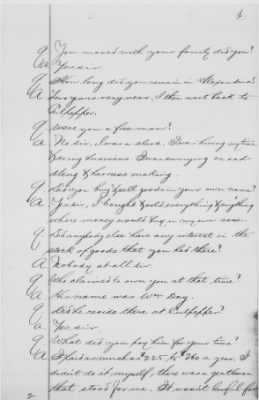 Q You moved with your family did you?
A Yes sir.
Q How long did you remain in Alexandria?
A Two years very near. I then went back to
Culpepper.
Q Were you a free man?
A No sir, I was a slave. I was hiring my time
& doing business. I was carrying on sad-
dling & harness making.
Q Did you buy & sell goods in your own name?
A Yes sir, I bought & sold everything & anything
where money would buy in my own name.
Q Did anybody else have any interest in the
stock of goods that you had there?
A Nobody at all sir.
Q Who claimed to own you at that time?
A His name was Wm Day.
Q Did he reside there at Culpepper?
A Yes sir.
Q What did you pay him for your time?
A I paid as much as 225, to $260 a year. I
didn't do it myself, there was a gentleman
that stood for me. It wasn't lawful for
2